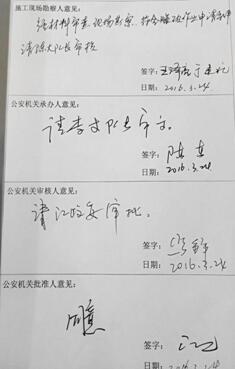 施工现场勘察人意见:
经材料审查、现场勘察，符合爆破作业申请条件
请陈大队长审核
签字:
日期: 2016.3.24
公安机关承办人意见:
请李支队长审示。
签字: 陈
日期: 2016.3.24.
公安机关审核人意见:
请江政委审批。
签字:
日期: 2016.3.24
公安机关批准人意见:
同意
签字: 江
日期: 2016.3.24